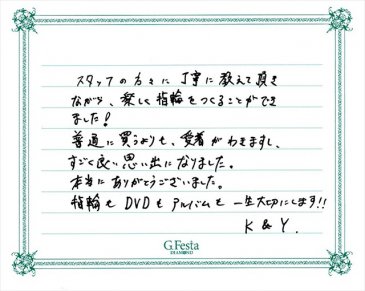 スタッフの方々に丁寧に教えて頂き
ながら、楽しく指輪をつくることができ
ました！
普通に買うよりも、愛着がわきますし、
すごく良い思い出になりました。
本当にありがとうございました。
指輪もDVDもアルバムも一生大切にします!!
K & Y.
G.Festa
DIAMOND